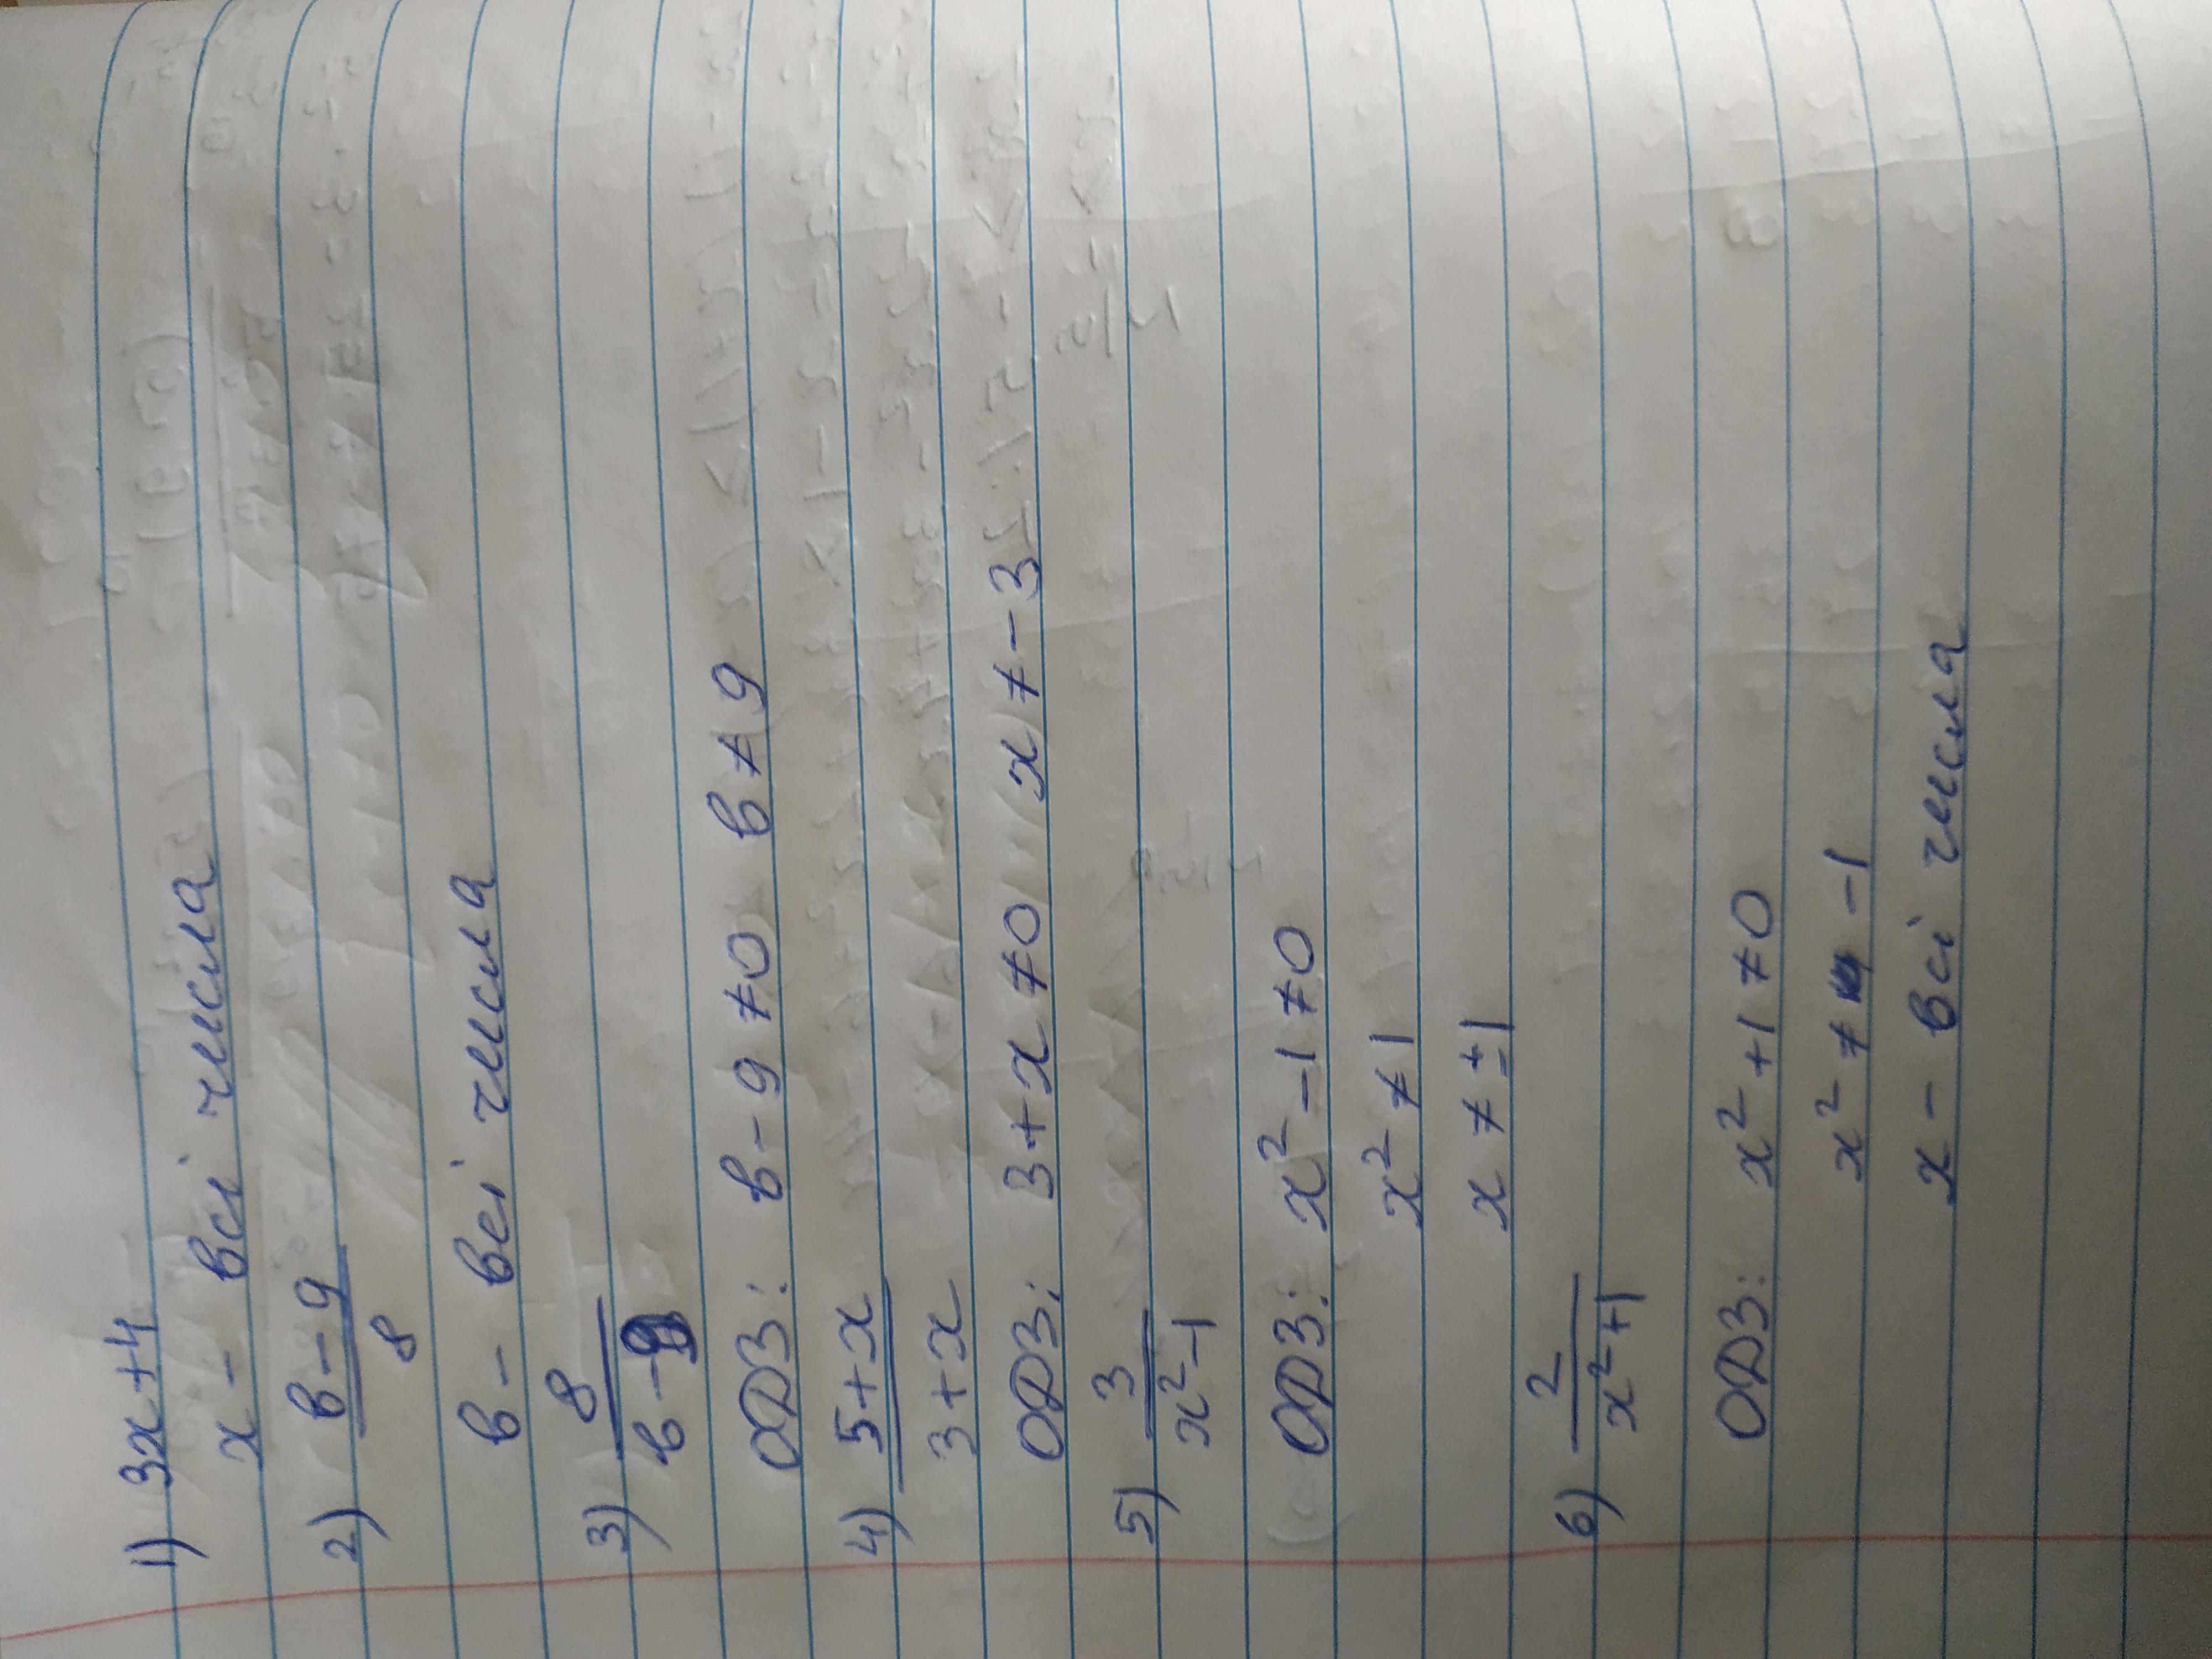 1) 3x+4
x - всі числа
2) в-9
8
в - всі числа
3) 8
в-9
ОДЗ: в-9≠0 в≠9
4) 5+x
3+x
ОДЗ: 3+x≠0 x≠-3
5) 3
x²-1
ОДЗ: x²-1≠0
x²≠1
x≠±1
6) 2
x²+1
ОДЗ: x²+1≠0
x²≠-1
x - всі числа